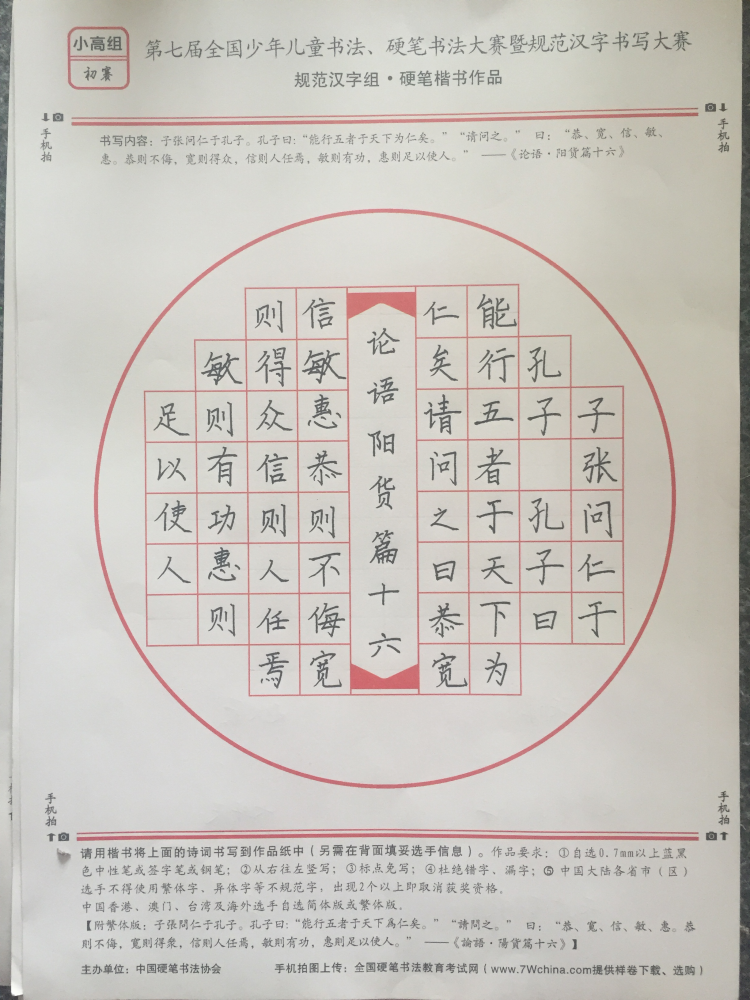 小高组
初赛
第七届全国少年儿童书法、硬笔书法大赛暨规范汉字书写大赛
规范汉字组·硬笔楷书作品
手机拍
手机拍
书写内容：子张问仁于孔子。孔子曰："能行五者于天下为仁矣。" "请问之。" 曰："恭、宽、信、敏、
惠。恭则不侮，宽则得众，信则人任焉，敏则有功，惠则足以使人。" ——《论语·阳货篇十六》
子张问仁于
孔子 孔子曰
能行五者于天下为
仁矣请问之曰恭宽
论语阳货篇十六
信敏惠恭则不侮宽
则得众信则人任焉
敏则有功惠则
足以使人
手机拍
手机拍
请用楷书将上面的诗词书写到作品纸中（另需在背面填妥选手信息）。作品要求：①自选0.7mm以上蓝黑
色中性笔或签字笔或钢笔；②从右往左竖写；③标点免写；④杜绝错字、漏字；⑤中国大陆各省市（区）
选手不得使用繁体字、异体字等不规范字，出现2个以上即取消获奖资格.
中国香港、澳门、台湾及海外选手自选简体版或繁体版.
【附繁体版：子張問仁于孔子。孔子曰："能行五者于天下爲仁矣。" "請問之。" 曰："恭、寬、信、敏、惠。恭
则不侮，寬則得衆，信則人任焉，敏則有功，惠則足以使人。" ——《論語·陽貨篇十六》】
主办单位：中国硬笔书法协会 手机拍图上传：全国硬笔书法教育考试网（www.7Wchina.com提供样卷下载、选购）